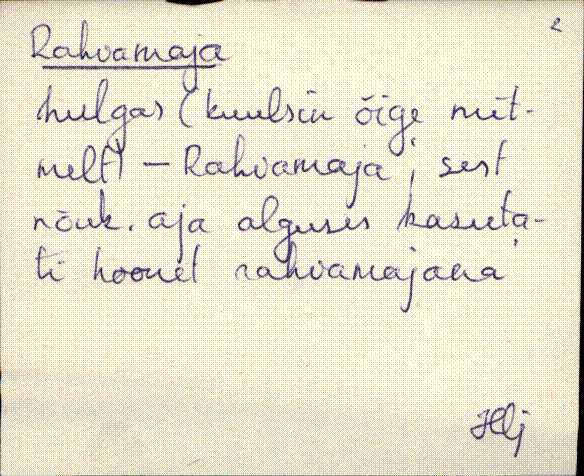 2
Rahvamaja
hulgas (kuulsin õige mit-
melt) – Rahvamaja, sest
nõuk. aja alguses kasuta-
ti hoonet rahvamajana
HLj